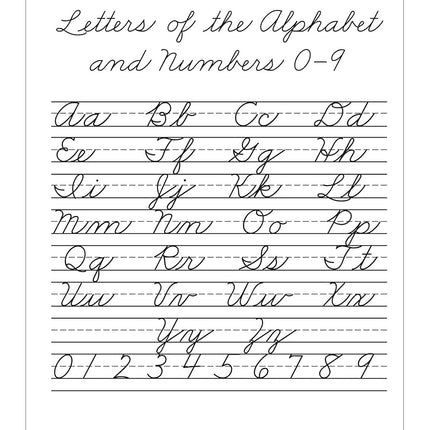 Letters of the Alphabet
and Numbers 0-9
Aa Bb Cc Dd
Ee Ff Gg Hh
Ii Jj Kk Ll
Mm Nn Oo Pp
Qq Rr Ss Tt
Uu Vv Ww Xx
Yy Zz
0 1 2 3 4 5 6 7 8 9